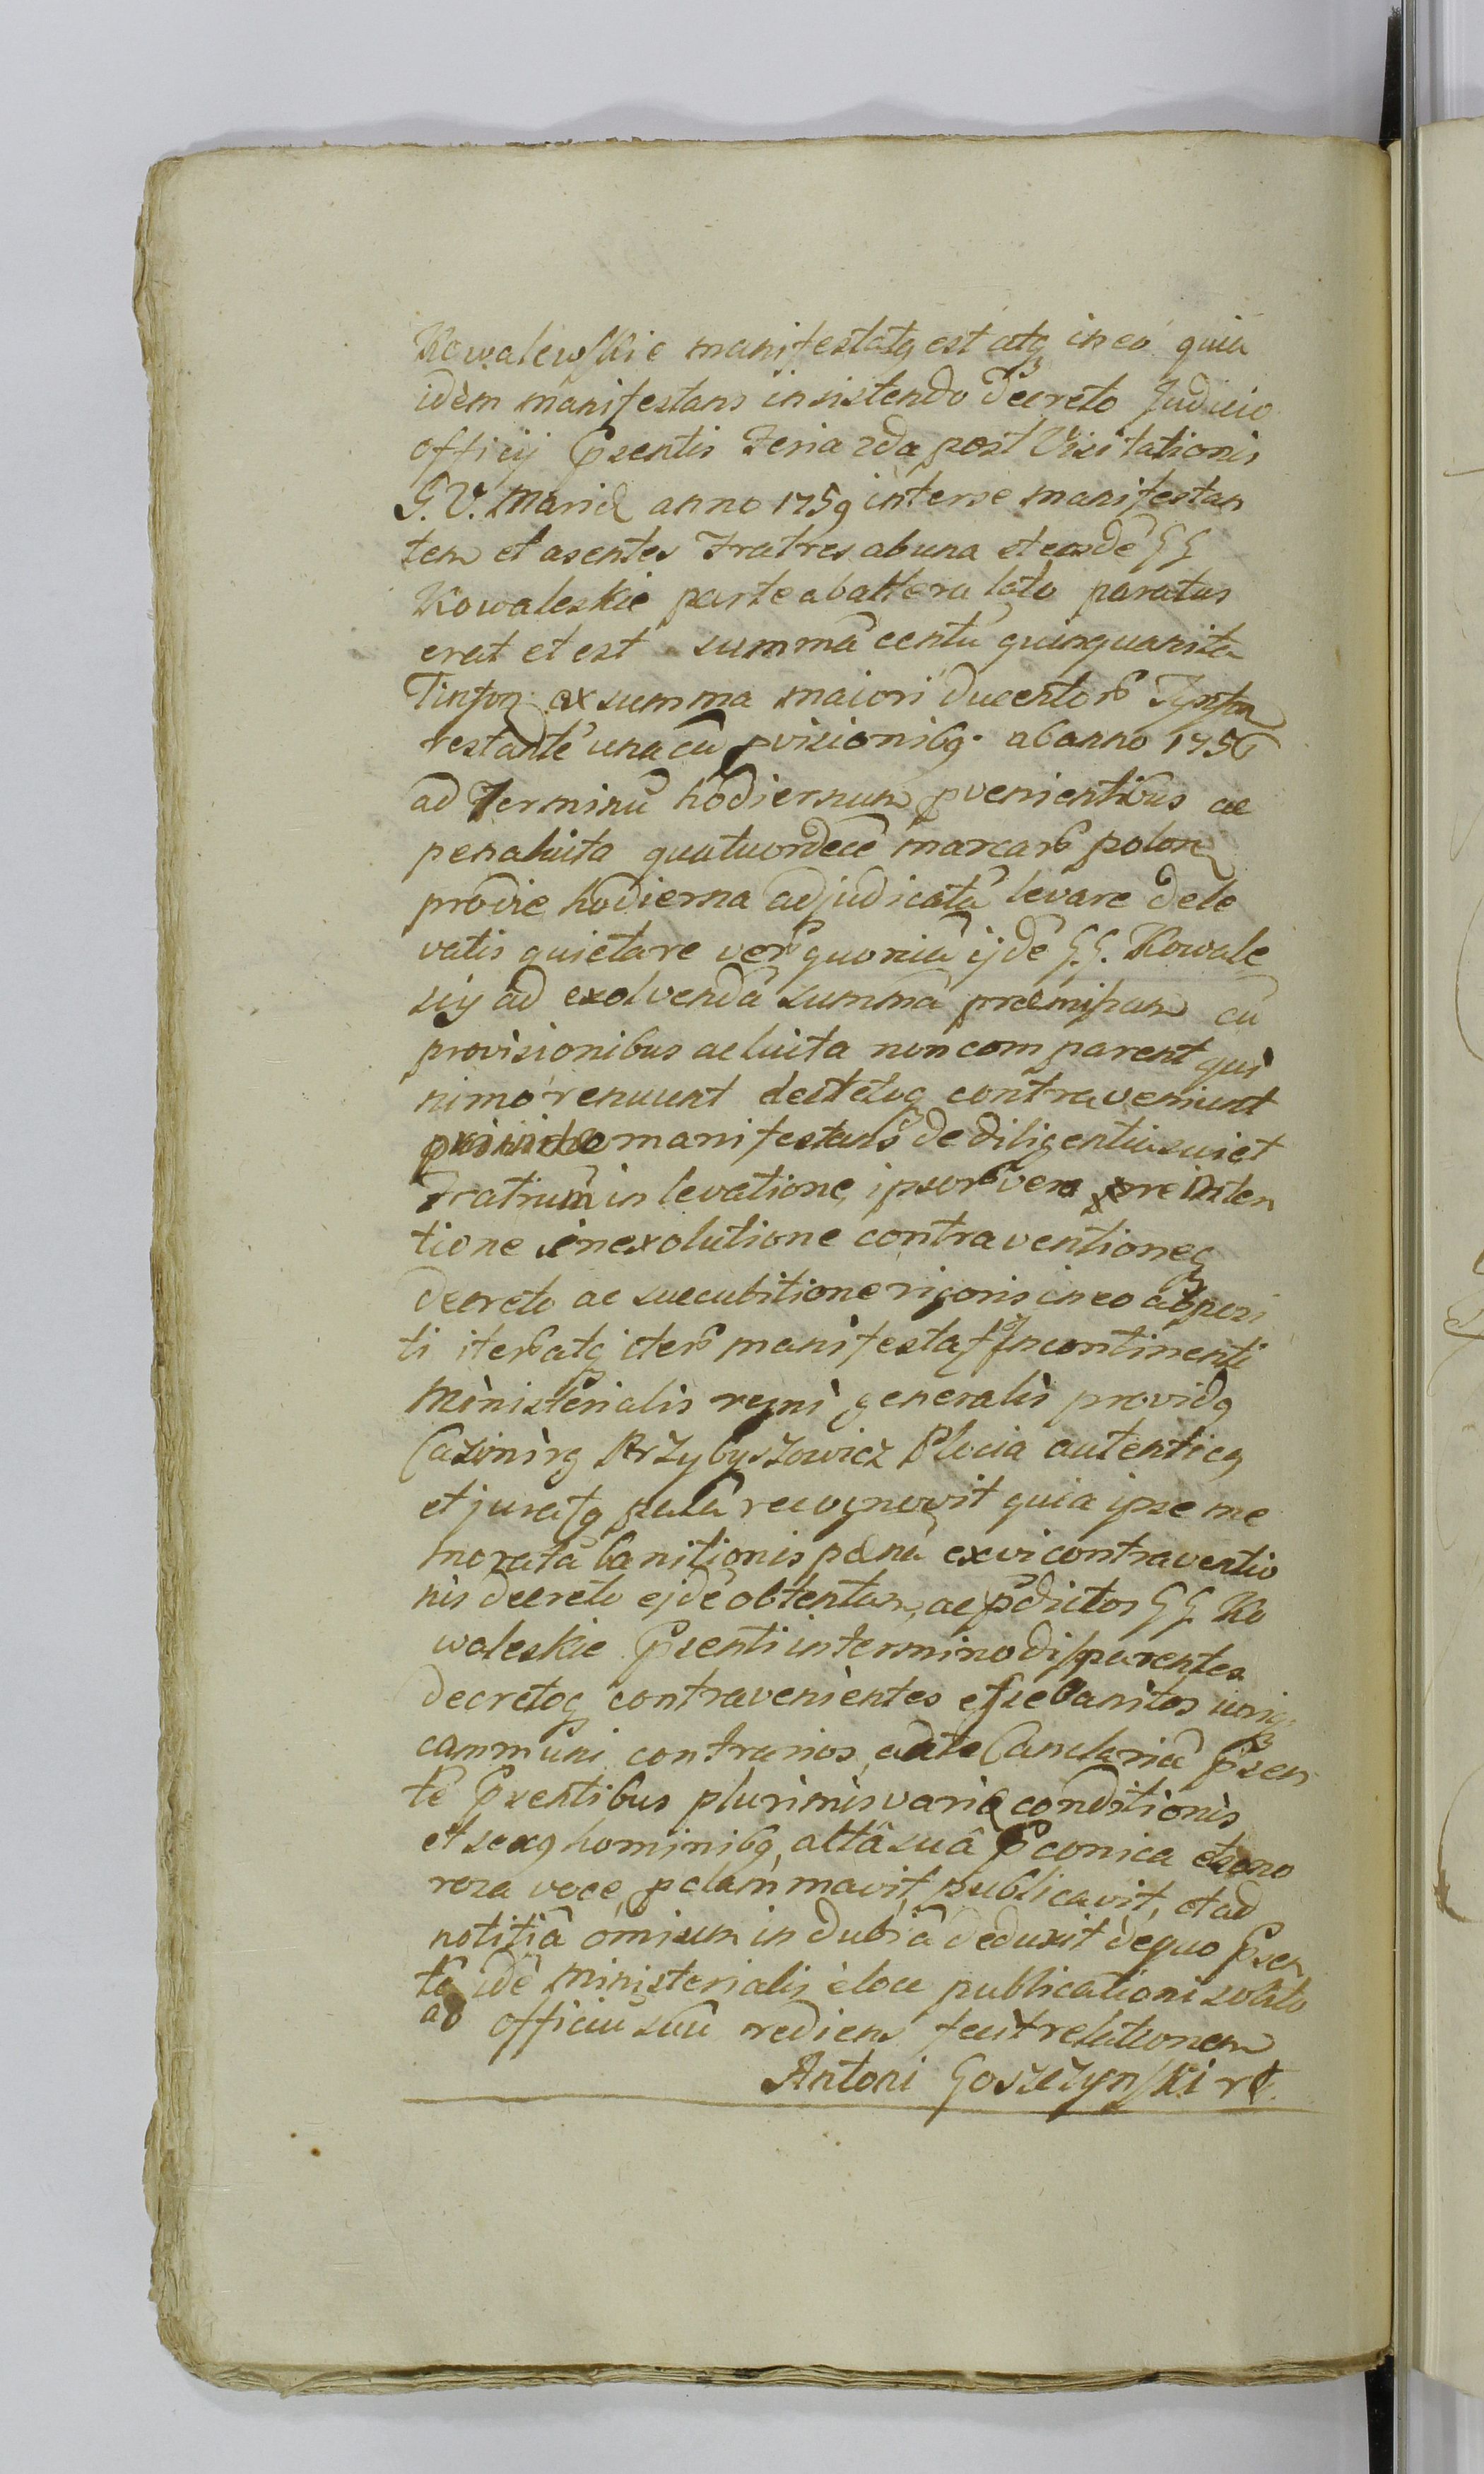 Kowalewskie manifestatq est atq in eo quia
idem manifestans insistendo Decreto Judicio
officij Psentis Feria 2da post Visitationis
G. V. Mariæ anno 1759 inter se manifestan
tem et asentes Fratres ab una et eosdē GG
Kowaleskie parte ab altera lato paratus
erat et est summā centū quinquaginta
Tinfon ex summa maiori Ducentorū Tynfon
restantē una cū pvisionibq ab anno 1756
ad Terminū hodiernum pvenientibus ac
pena luita quatuordecē marcarū polon
pro die hodierna adjudicatā levare de le
vatis quietare verū quoniā ijdē G.G. Kowale
scy ad exolvendā summā præmissam cū
provisionibus ac luita non comparent qui
nimo renuunt decretoq contraveniunt
proinde manifestans de diligentia sui et
Fratrum in levatione, ipsorū vero reniten
tione inexolutione contraventioneq
Decreto ac succubitione rigoris in eo apposi
ti iterū atq iterū manifestat Incontinenti
Ministerialis regni generalis providq
Casimirq Przybyszowicz Plocia autenticq
et juratq palā recognovit quia ipse me
moratā banitionis pænā ex vi contraventio
nis decreto ejdē obtentam, ac pdictos GG. Ko
waleskie Psenti in termino disparentes
Decretoq contravenientes esse banitos juriq
communi contrarios, ad et te Cancelariā Psen
tē Psentibus plurimis variæ conditionis
et sexq hominibq, altâ suâ Pconica et sono
rosa voce, palam mavit publicavit, et ad
notitiā omium indubiā deduxit de quo Psen
tē idē Ministerialis è loco publicationi solito
ad officiū suū rediens fecit relationem
Antoni Goszczynski rt